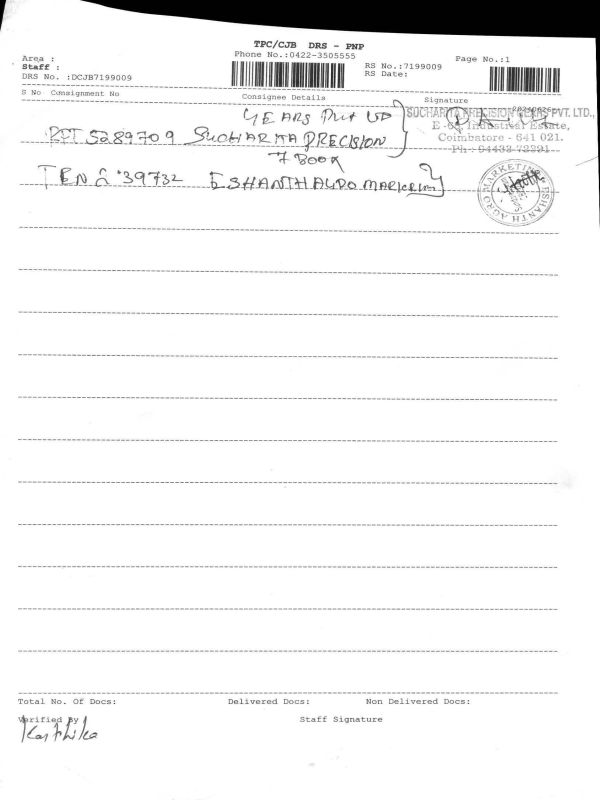 TPC/CJB DRS - PNP
Phone No.:0422-3505555
Area :
Staff :
DRS No. :DCJB7199009
RS No.:7199009
RS Date:
Page No.:1
S No Consignment No Consignee Details Signature
SUCHARITA PRECISION GEARS PVT. LTD.,
Industrial Estate,
Coimbatore - 641 021.
Ph : 94433 72291
5289709 SUCHARITA PRECISION
7 BOOK
39732 ESHANTH AGRO MARKETING
ESHANTH AGRO MARKETING
Total No. Of Docs: Delivered Docs: Non Delivered Docs:
Verified By Staff Signature
Karthika